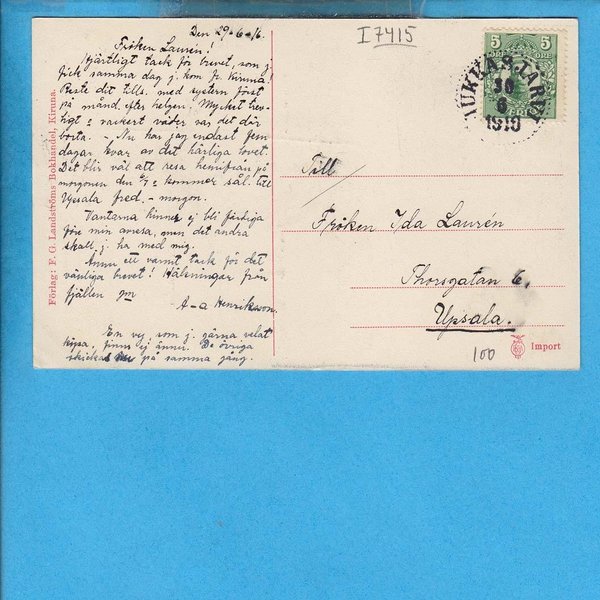 Den 29-6-16.
Fröken Laurén!
Hjärtligt tack för brevet, som j.
fick samma dag j. kom fr. Kiruna!
Reste dit tills. med systern först
på månd. efter helgen. Mycket trev-
ligt o vackert väder var det där
borta. – Nu har jag endast fem
dagar kvar av det härliga lovet.
Det blir väl att resa hemifrån på
morgonen den 5/7 o kommer sål. till
Upsala fred. – morgon.
Vantarna hinner ej bli färdiga
före min avresa, men det andra
skall j. ha med mig.
Ännu ett varmt tack för det
vänliga brevet! Hälsningar från
fjällen gm
A-a Henrikson.
En vy som j. gärna velat
köpa, finns ej ännu. De övriga
skickas på samma gång.
Förlag: F. G. Landströms Bokhandel, Kiruna.
I 7415
5 5
ÖRE
JUKKASJÄRVI
30
6
1916
Till
Fröken Ida Laurén
Thorsgatan 6.
Upsala.
100
Import